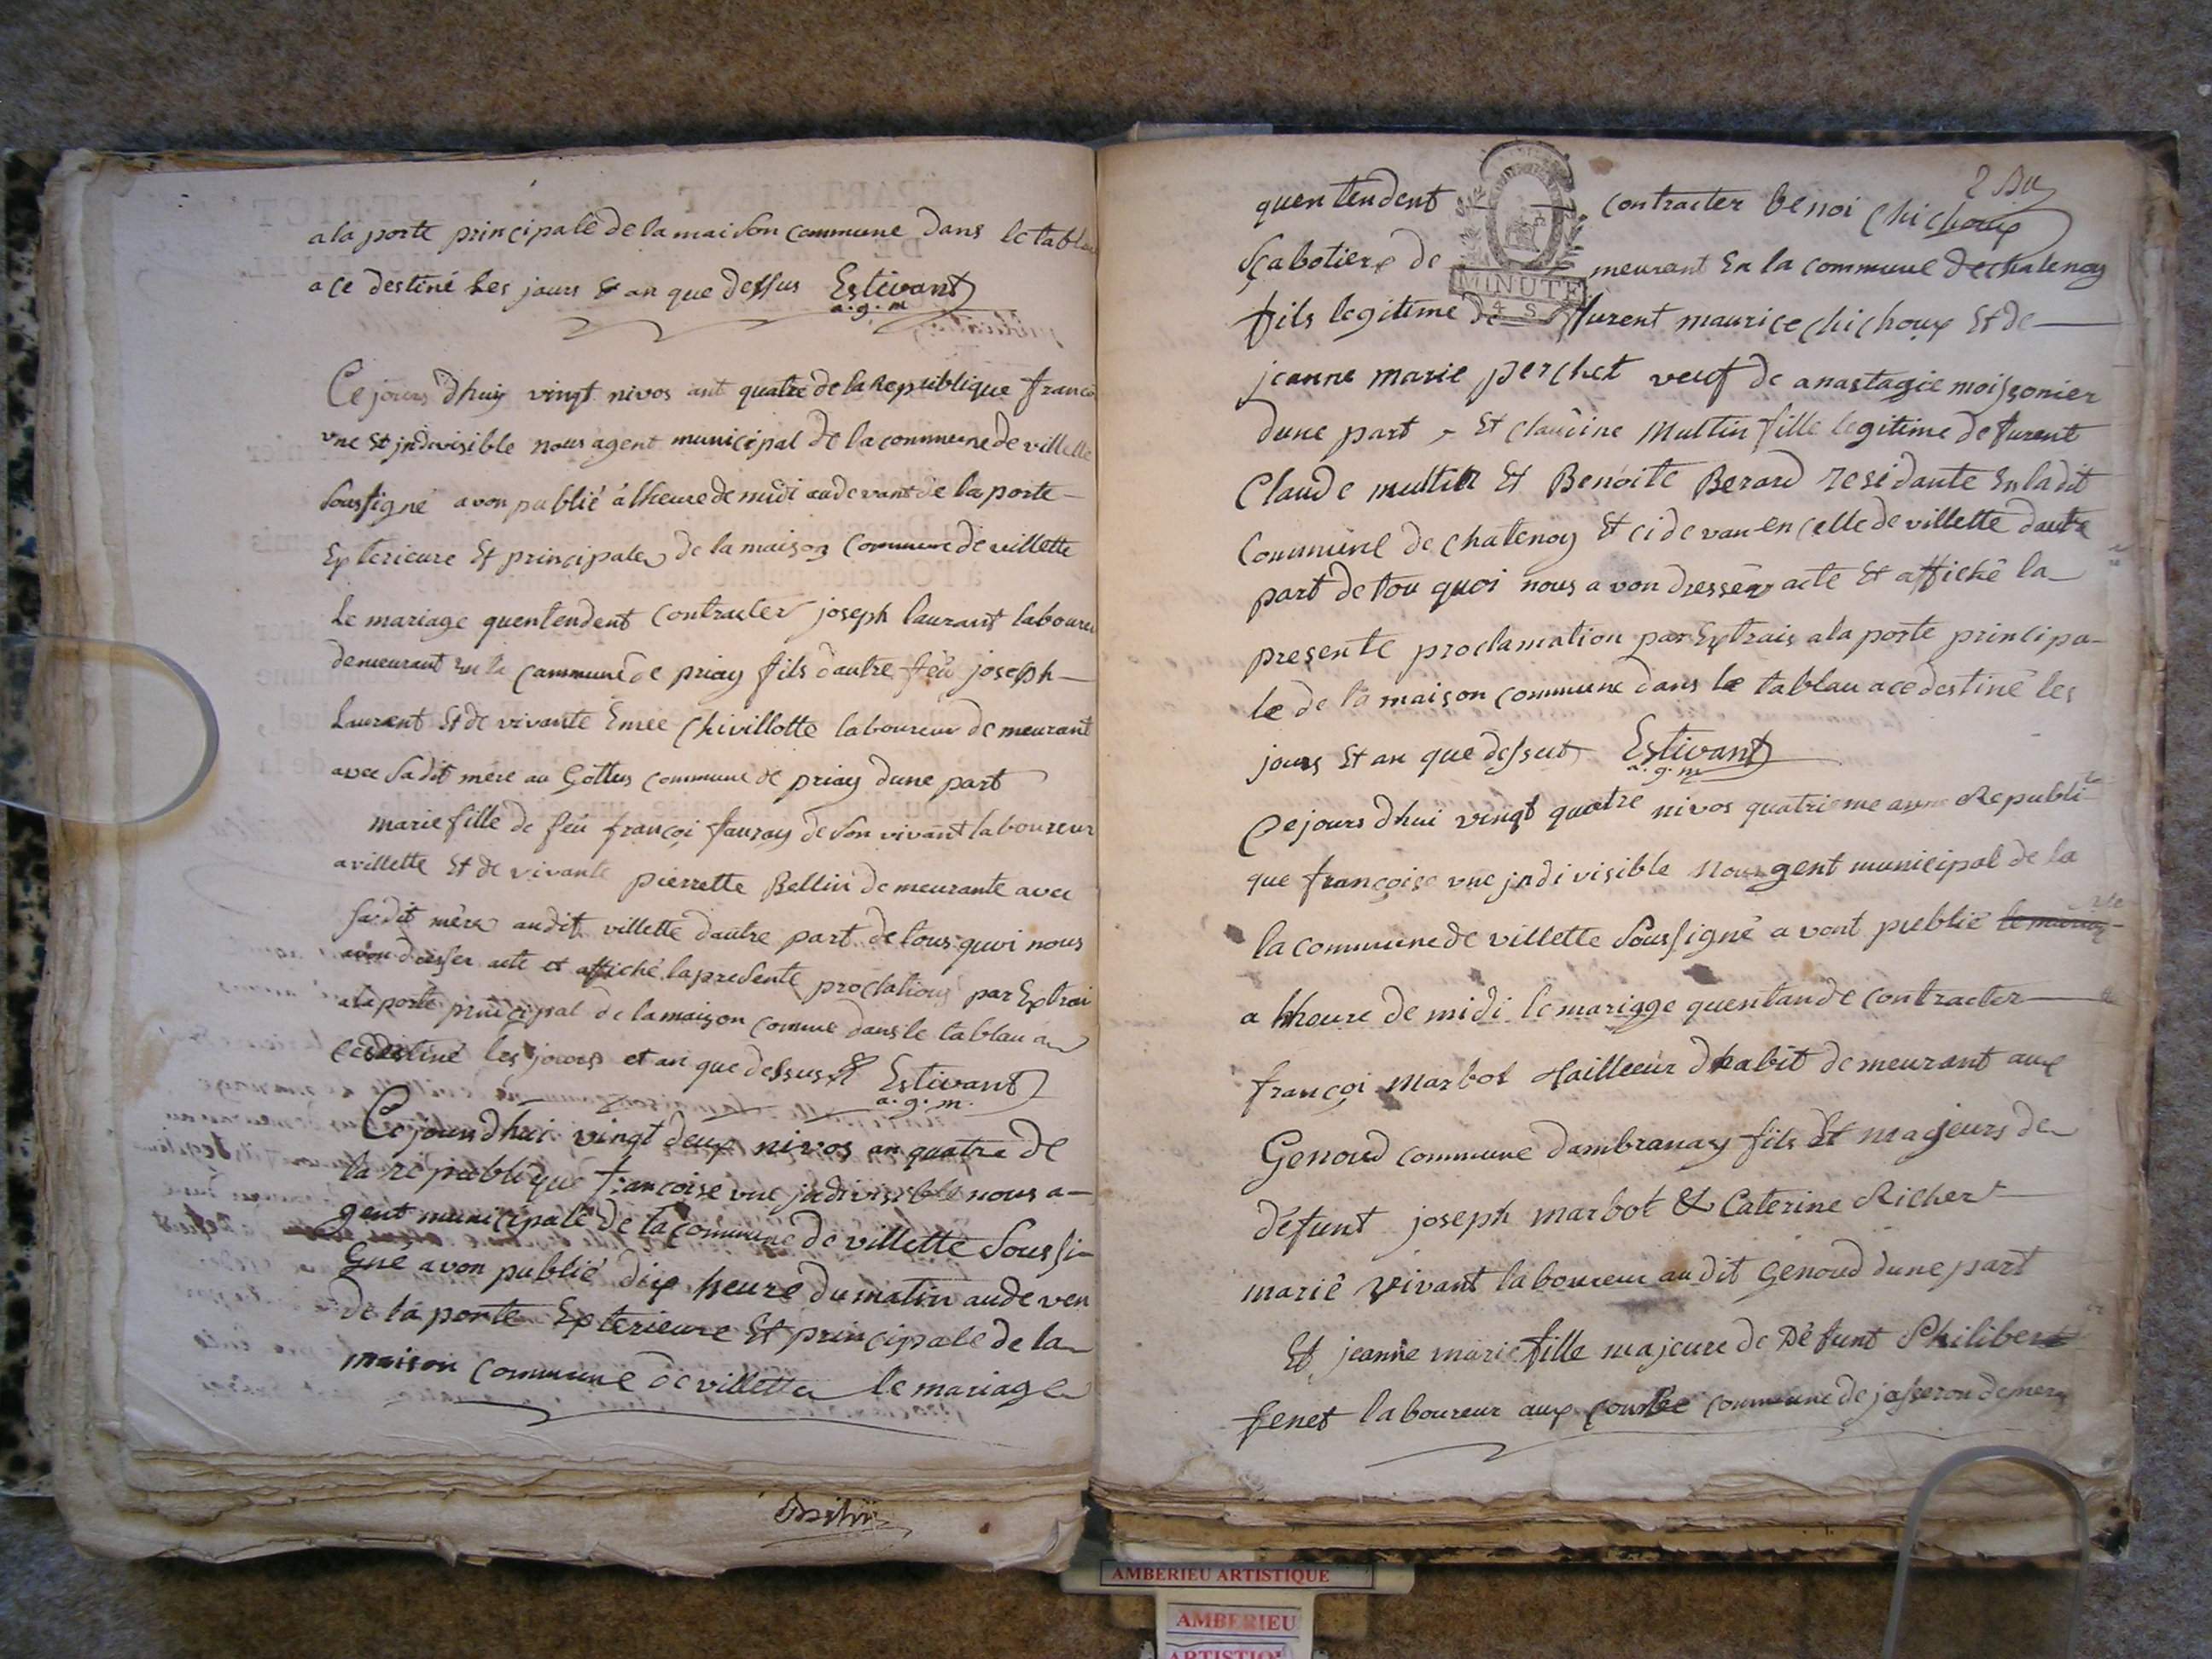 a la porte principale de la maison commune dans le tablau
a ce destiné les jours & an que dessus Estivant
a.g.m
Ce jours dhuy vingt nivos ant quatre de la Republique franco
une Et jndivisible nous agent municipal de la commune de villette
soussigné avon publié à lheure de midi au devant de la porte
Exterieure Et principale de la maison commune de villette
Le mariage quentendent contracter joseph laurant laboureu
demeurant en la commune de priay fils dautre feu joseph
Laurent Et de vivante Emee Chivillotte laboureur demeurant
avec sadit mère au Gottus commune de priay dune part
marie fille de feu françoi fauray de son vivant laboureur
a villette Et de vivante pierrette Bellin demeurante avec
sadit mère audit villette dautre part de tous quoi nous
avon dresser acte et affiché la presente proclations par Extrai
a la porte principal de la maison comune dans le tablau a
ce destiné les jours et an que dessus Estivant
a.g.m.
Ce jourdhui vingt deux nivos an quatre de
la republique francoise une jndivisible nous a-
gent municipale de la commune de villette soussi-
gné avon publié dix heure du matin au de ven
de la porte Exterieure Et principale de la
maison commune de villette le mariage
2
quentendent contracter benoi chichoux
sabotier de meurant En la commune de chatenay
MINUTE
4 S
fils legitime de furent maurice chichoux Et de
jeanne marie perchet veuf de anastagie moissonier
dune part Et claudine Multin fille legitime de furent
Claude multin Et Benoite Berard residante En ladit
Commune de chatenay Et ci de van en celle de villette dautre
part de tou quoi nous avon dresser acte Et affiché la
presente proclamation par Extrais a la porte principa-
le de la maison commune dans le tablau a ce destiné les
jours Et an que dessus Estivant
a.g.m
Ce jours dhui vingt quatre nivos quatrieme anne Republi-
que françoise une jndivisible Nous gent municipal de la
la commune de villette soussigné avont publié le mariag-
a lheure de midi le mariage quentande contracter
françoi Marbot tailleur dhabit demeurant aux
Genoud commune dambronay fils Et majeurs de
défunt joseph marbot & Caterine Richer
marié vivant laboureur audit Genoud dune part
Et jeanne marie fille majeure de Défunt Philibert
fenet laboureur aux commune de jasseron demeu
AMBERIEU ARTISTIQUE
AMBERIEU
ARTISTIQUE